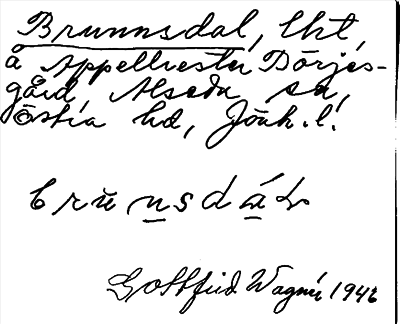 Brunnsdal, lht,
å Appelkvistu Börjes-
gård, Alseda sn,
Östra hd, Jönk. l.
brŭnsdáɫ
Gottfrid Wagnér 1946